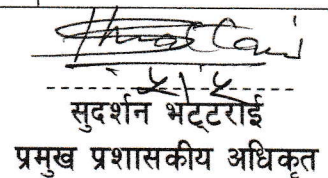 ५।५
सुदर्शन भट्टराई
प्रमुख प्रशासकीय अधिकृत